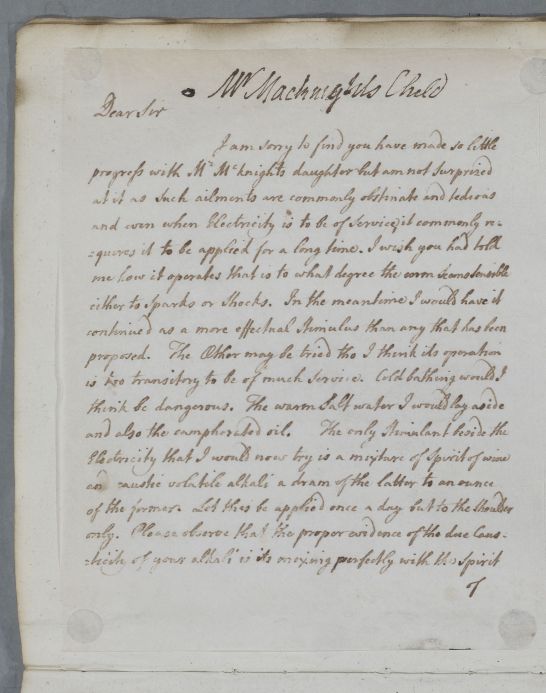 Mr Macknights Child
Dear Sir
I am sorry to find you have made so little
progress with Mr. McKnights daughter but am not surprized
at it as such ailments are commonly obstinate and tedious
and even when Electricity is to be of Service, it commonly re-
=quires it to be applied for a long time. I wish you had told
me how it operates that is to what degree the arm seems sensible
either to Sparks or Shocks. In the meantime I would have it
continued as a more effectual Stimulus than any that has been
proposed. The Other may be tried tho I think its operation
is too transitory to be of much Service. Cold bathing would I
think be dangerous. The warm Salt water I would lay aside
and also the camphorated oil. The only Stimulant beside the
Electricity that I would now try is a mixture of Spirit of wine
caustic volatile alkali a dram of the latter to an ounce
of the former. Let this be applied once a day but to the Shoulder
only. Please observe that the proper evidence of the due Caus-
-ticity of your alkali is its mixing perfectly with the Spirit
of